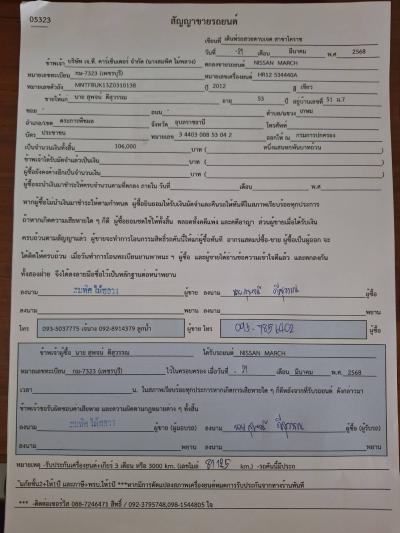 05323
สัญญาขายรถยนต์
เขียนที่ เต็นท์รถสวยคาบเจค สาขาโคราช
วันที่ 21 เดือน มีนาคม พ.ศ 2568
ข้าพเจ้า บริษัท เจ.ที. คาร์เซ็นเตอร์ จำกัด (นางสมพิศ ไม้หลวง) ตกลงขายรถยนต์ NISSAN MARCH
หมายเลขทะเบียน กม-7323 (เพชรบุรี) หมายเลขเครื่องยนต์ HR12 534440A
หมายเลขตัวถัง MNTFBUK13Z0310138 ปี 2012 สี เขียว
ขายให้แก่ นาย สุพจน์ ดีสุวรรณ อายุ 53 ปี อยู่บ้านเลขที่ 51 ม.7
ซอย - ถนน - ตำบล/แขวง เกษม
อำเภอ/เขต ตระการพืชผล จังหวัด อุบลราชธานี โทรศัพท์
บัตร ประชาชน หมายเลข 3 4403 008 53 04 2 ออกให้ ณ กรมการปกครอง
เป็นจำนวนเงินทั้งสิ้น 106,000 บาท ( หนึ่งแสนหกพันบาทถ้วน )
ข้าพเจ้าได้รับมัดจำแล้วเป็นเงิน บาท ( )
ผู้ซื้อยังคงค้างอีกเป็นจำนวนเงิน บาท ( )
ผู้ซื้อจะนำเงินมาชำระให้ครบจำนวนตามที่ตกลง ภายใน วันที่ เดือน พ.ศ
หากผู้ซื้อไม่นำเงินมาชำระให้ตามกำหนด ผู้ซื้อยินยอมให้ริบเงินมัดจำและคืนรถให้ทันทีในสภาพเรียบร้อยทุกประการ
ถ้าหากเกิดความเสียหายใด ๆ ก็ดี ผู้ซื้อยอมชดใช้ให้ทั้งสิ้น ตลอดทั้งคดีแพ่ง และคดีอาญา ส่วนผู้ขายเมื่อได้รับเงิน
ครบถ้วนตามสัญญาแล้ว ผู้ขายจะทำการโอนกรรมสิทธิ์รถคันนี้ให้แก่ผู้ซื้อทันที อากรแสตมป์ซื้อ-ขาย ผู้ซื้อเป็นผู้ออก จะ
ได้คิดให้ครบถ้วน เมื่อวันทำการโอนทะเบียนยานพาหนะ ฯ ผู้ซื้อ และผู้ขายได้อ่านข้อความเข้าใจดีแล้ว และตกลงกัน
ทั้งสองฝ่าย จึงได้ลงลายมือชื่อไว้เป็นหลักฐานต่อหน้าพยาน
ลงนาม สมพิศ ไม้หลวง ผู้ขาย ลงนาม ผู้ซื้อ
ลงนาม พยาน ลงนาม พยาน
โทร 093-5037775 เจ๊นาง 092-8914379 ลูกน้ำ ผู้ขาย โทร ผู้ซื้อ
ข้าพเจ้าผู้ซื้อ นาย สุพจน์ ดีสุวรรณ ได้รับรถยนต์ NISSAN MARCH
หมายเลขทะเบียน กม-7323 (เพชรบุรี) ไว้ในครอบครอง เมื่อวันที่ 21 เดือน มีนาคม พ.ศ 2568
เวลา น. ในสภาพเรียบร้อยทุกประการหากเกิดการเสียหายใด ๆ ก็ดีหลังจากที่รับรถยนต์ ดังกล่าวมา
ข้าพเจ้าขอรับผิดชอบค่าเสียหาย และความผิดตามกฎหมายต่าง ๆ ทั้งสิ้น
ลงนาม สมพิศ ไม้หลวง ผู้ขาย (ผู้มอบรถ) ลงนาม ผู้ซื้อ (ผู้รับรถ)
ลงนาม พยาน ลงนาม พยาน
หมายเหตุ -รับประกันเครื่องยนต์+เกียร์ 3 เดือน หรือ 3000 km. (เลขไมล์ 81125 km.) -รถคันนี้มีประกั